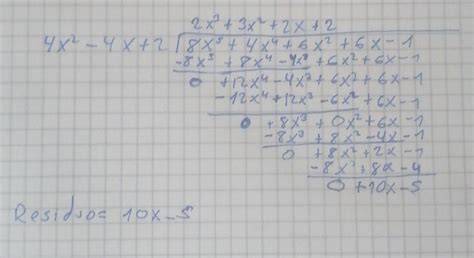 2x³ + 3x² + 2x + 2
4x² - 4x + 2 | 8x⁵ + 4x⁴ + 6x² + 6x - 1
-8x⁵ + 8x⁴ - 4x³ + 6x² + 6x - 1
0 + 12x⁴ - 4x³ + 6x² + 6x - 1
-12x⁴ + 12x³ - 6x² + 6x - 1
0 + 8x³ + 0x² + 6x - 1
-8x³ + 8x² - 4x - 1
0 + 8x² + 2x - 1
-8x² + 8x - 4
0 + 10x - 5
Residuo = 10x - 5